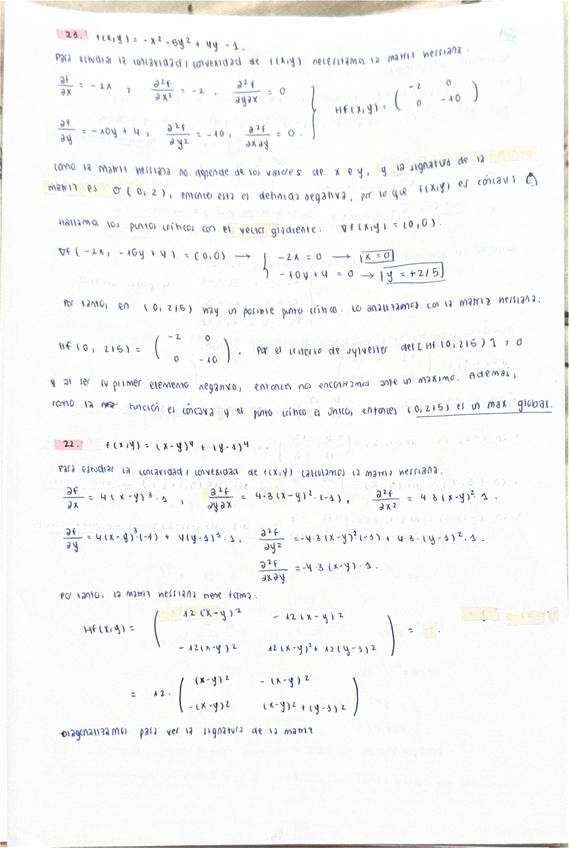 21. f(x,y) = -x² - 5y² + 4y - 1.
Para estudiar la concavidad/convexidad de f(x,y) necesitamos la matriz hessiana:
∂f/∂x = -2x , ∂²f/∂x² = -2 , ∂²f/∂y∂x = 0
Hf(x,y) = ( -2 0 ; 0 -10 )
∂f/∂y = -10y + 4 , ∂²f/∂y² = -10 , ∂²f/∂x∂y = 0.
como la matriz hessiana no depende de los valores de x e y, y la signatura de la
matriz es σ(0,2), entonces esta es definida negativa, por lo que f(x,y) es cóncava
Hallamos los puntos críticos con el vector gradiente: ∇f(x,y) = (0,0).
∇f(-2x, -10y+4) = (0,0) → { -2x = 0 → x = 0
-10y+4 = 0 → y = +2/5
Por tanto, en (0,2/5) hay un posible punto crítico. Lo analizamos con la matriz hessiana:
Hf(0,2/5) = ( -2 0 ; 0 -10 ) . Por el criterio de sylvester det[Hf(0,2/5)] > 0
y al ser su primer elemento negativo, entonces nos encontramos ante un máximo. Además,
como la función es cóncava y el punto crítico es único, entonces (0,2/5) es un max. global.
22. f(x,y) = (x-y)⁴ + (y-1)⁴
Para estudiar la concavidad/convexidad de f(x,y) calculamos la matriz hessiana.
∂f/∂x = 4(x-y)³·1 , ∂²f/∂y∂x = 4·3(x-y)²·(-1), ∂²f/∂x² = 4·3(x-y)²·1.
∂f/∂y = 4(x-y)³(-1) + 4(y-1)³·1, ∂²f/∂y² = -4·3(x-y)²(-1) + 4·3·(y-1)²·1.
∂²f/∂x∂y = -4·3(x-y)·1.
Por tanto, la matriz hessiana tiene forma:
Hf(x,y) = ( 12(x-y)² -12(x-y)² ; -12(x-y)² 12(x-y)² + 12(y-1)² ) =
= 12· ( (x-y)² -(x-y)² ; -(x-y)² (x-y)² + (y-1)² )
Diagonalizamos para ver la signatura de la matriz